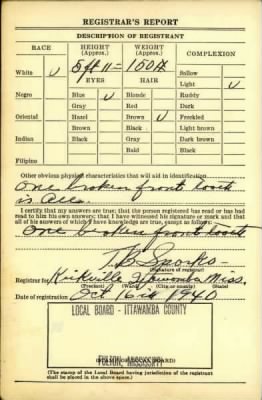 REGISTRAR'S REPORT
DESCRIPTION OF REGISTRANT
RACE HEIGHT (Approx.) WEIGHT (Approx.) COMPLEXION
White ✓ 5 ft 11 = 150 # Sallow
EYES HAIR Light ✓
Negro Blue ✓ Blonde Ruddy
Gray Red Dark
Oriental Hazel Brown ✓ Freckled
Brown Black Light brown
Indian Black Gray Dark brown
Bald Black
Filipino
Other obvious physical characteristics that will aid in identification
One broken front tooth
is all.
I certify that my answers are true; that the person registered has read or has had
read to him his own answers; that I have witnessed his signature or mark and that
all of his answers of which I have knowledge are true, except as follows:
One broken front tooth
Sparks
(Signature of registrar)
Registrar for Kirkville Itawamba Miss.
(Precinct) (Ward) (City or county) (State)
Date of registration Oct 16 1940
LOCAL BOARD - ITTAWAMBA COUNTY
FULTON, MISSISSIPPI
(STAMP OF LOCAL BOARD)
(The stamp of the Local Board having jurisdiction of the registrant
shall be placed in the above space.)